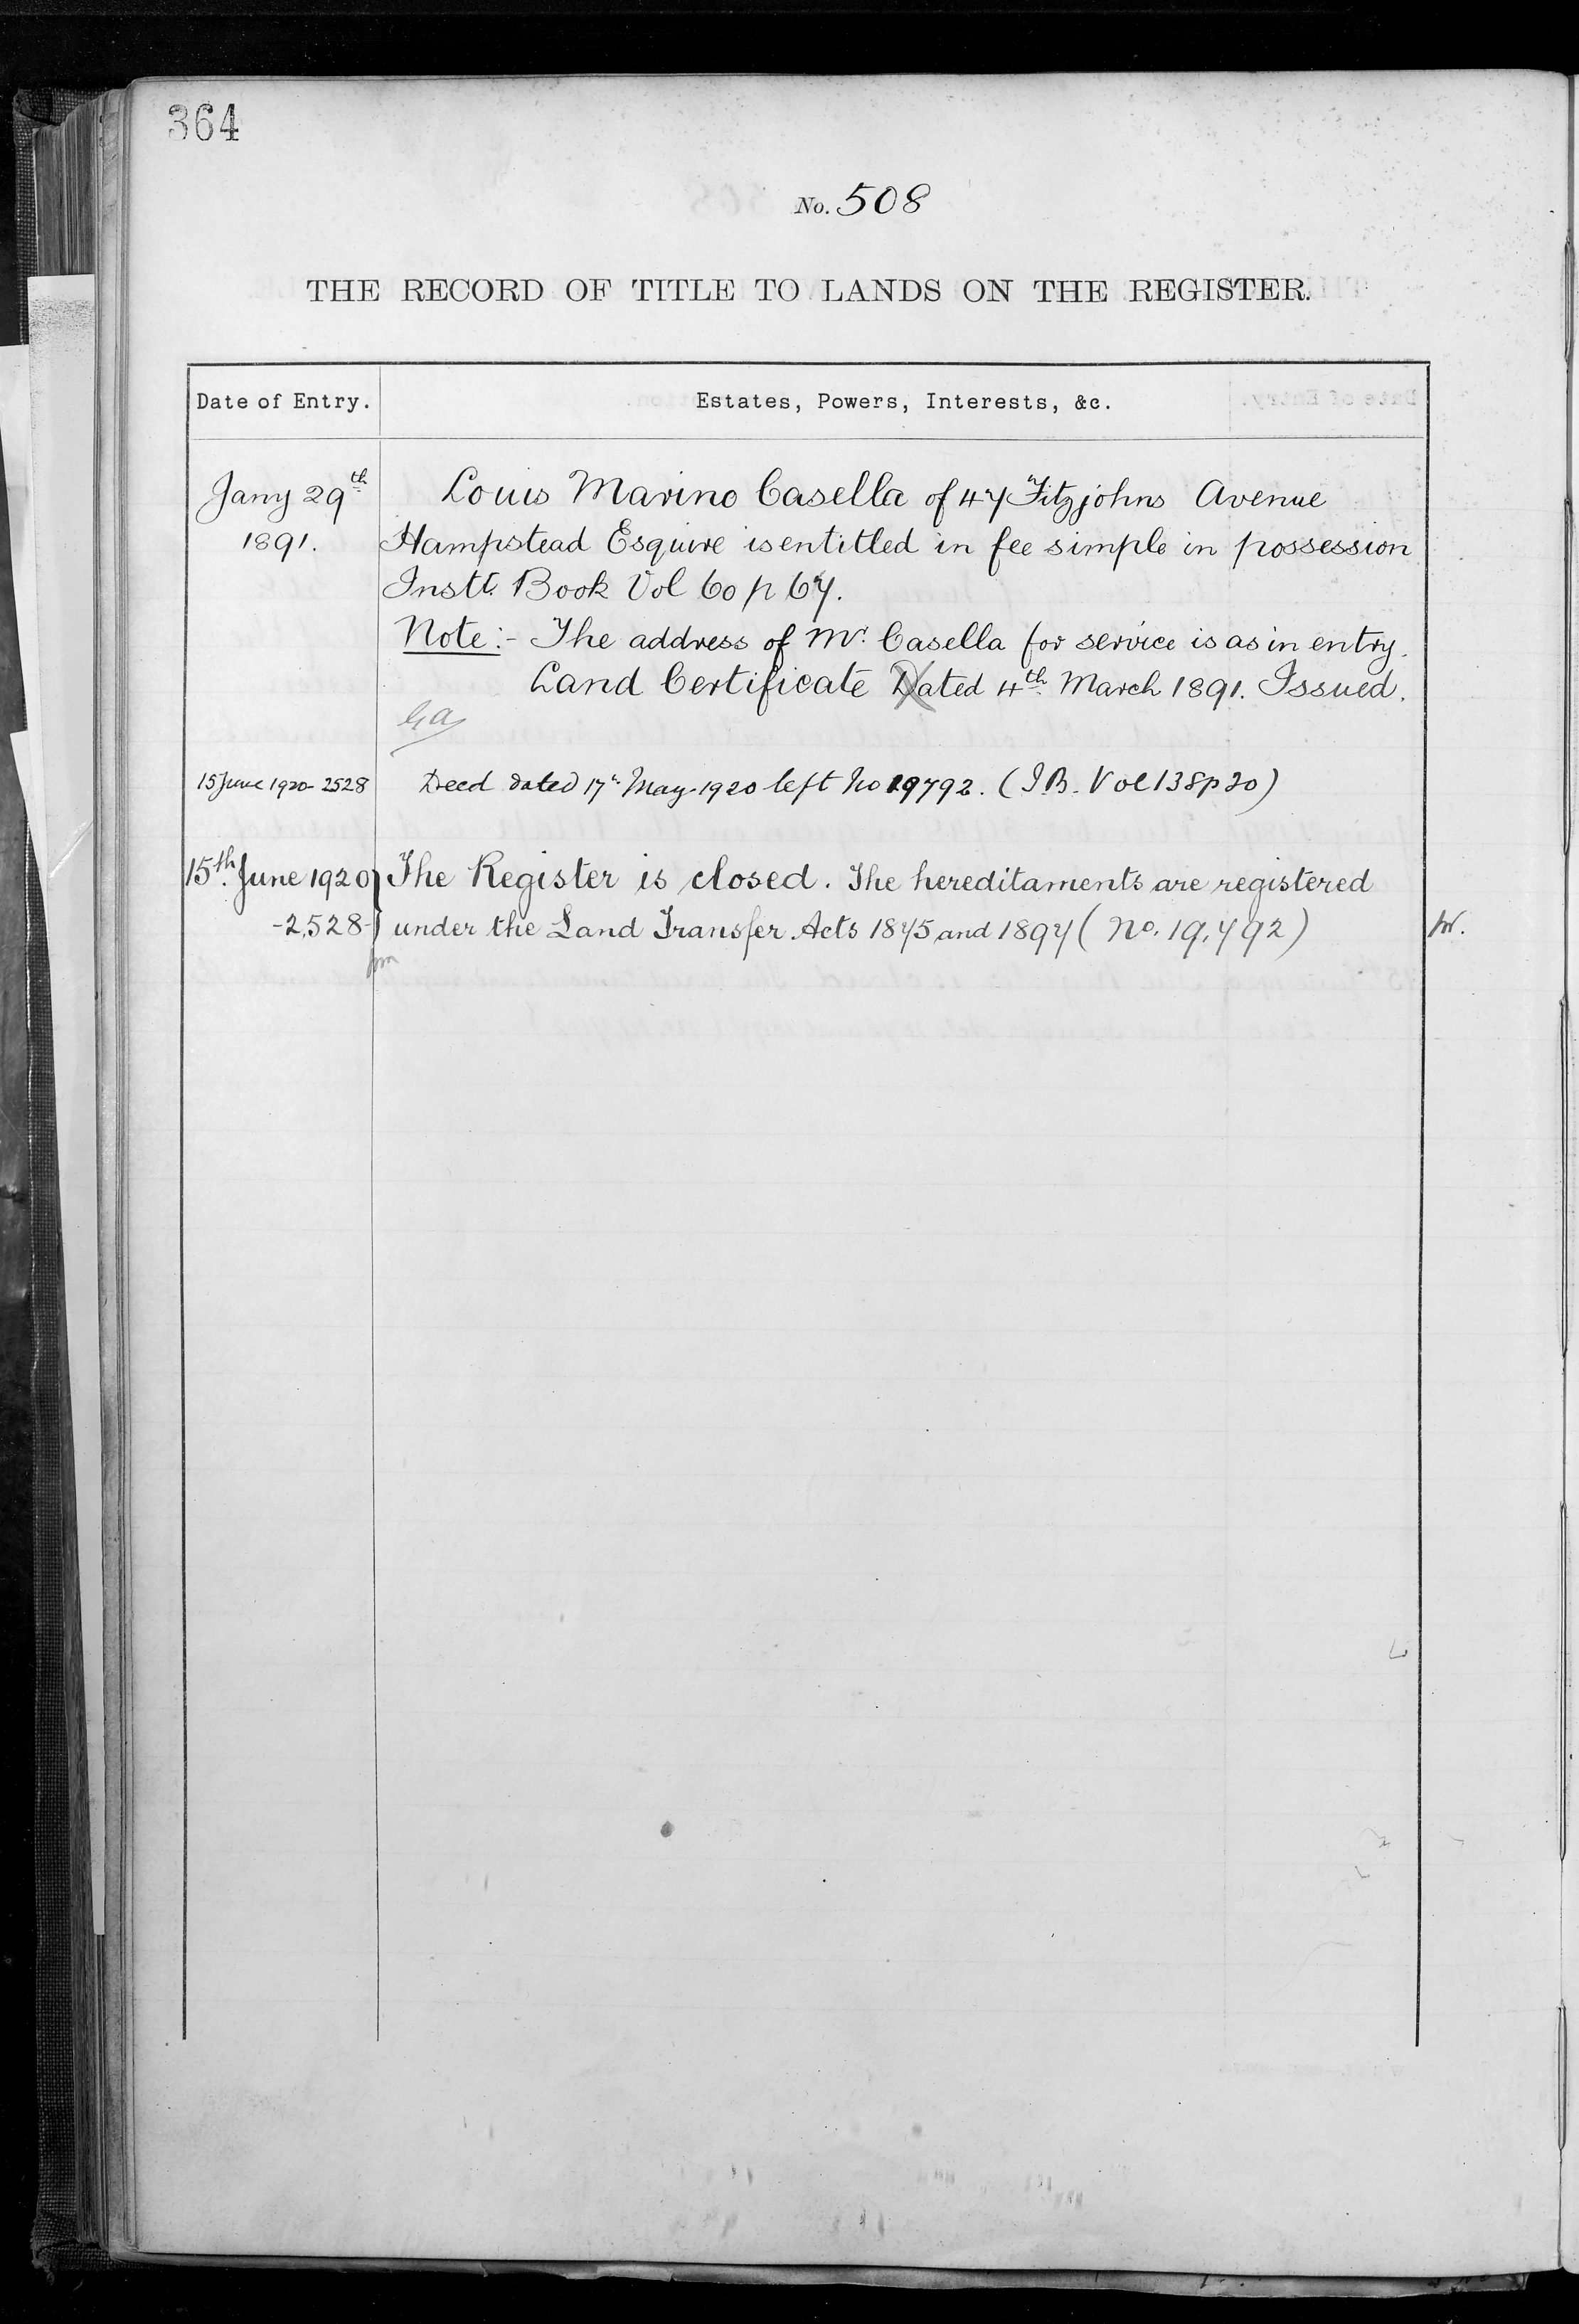 364
No. 508
THE RECORD OF TITLE TO LANDS ON THE REGISTER.
Date of Entry. Estates, Powers, Interests, &c.
Jany 29th Louis Marino Casella of 47 Fitzjohns Avenue
1891. Hampstead Esquire is entitled in fee simple in possession
Instt. Book Vol 60 p 67.
Note:- The address of Mr. Casella for service is as in entry.
Land Certificate Dated 4th March 1891. Issued.
15 June 1920 - 2528 Deed dated 17th May 1920 left No 19792. (I.B. Vol 138 p 20)
15th. June 1920 } The Register is closed. The hereditaments are registered
-2,528- } under the Land Transfer Acts 1875 and 1897 (No. 19,792)